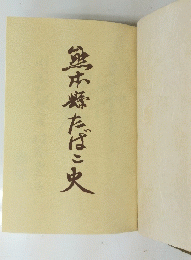 熊本縣たばこ史